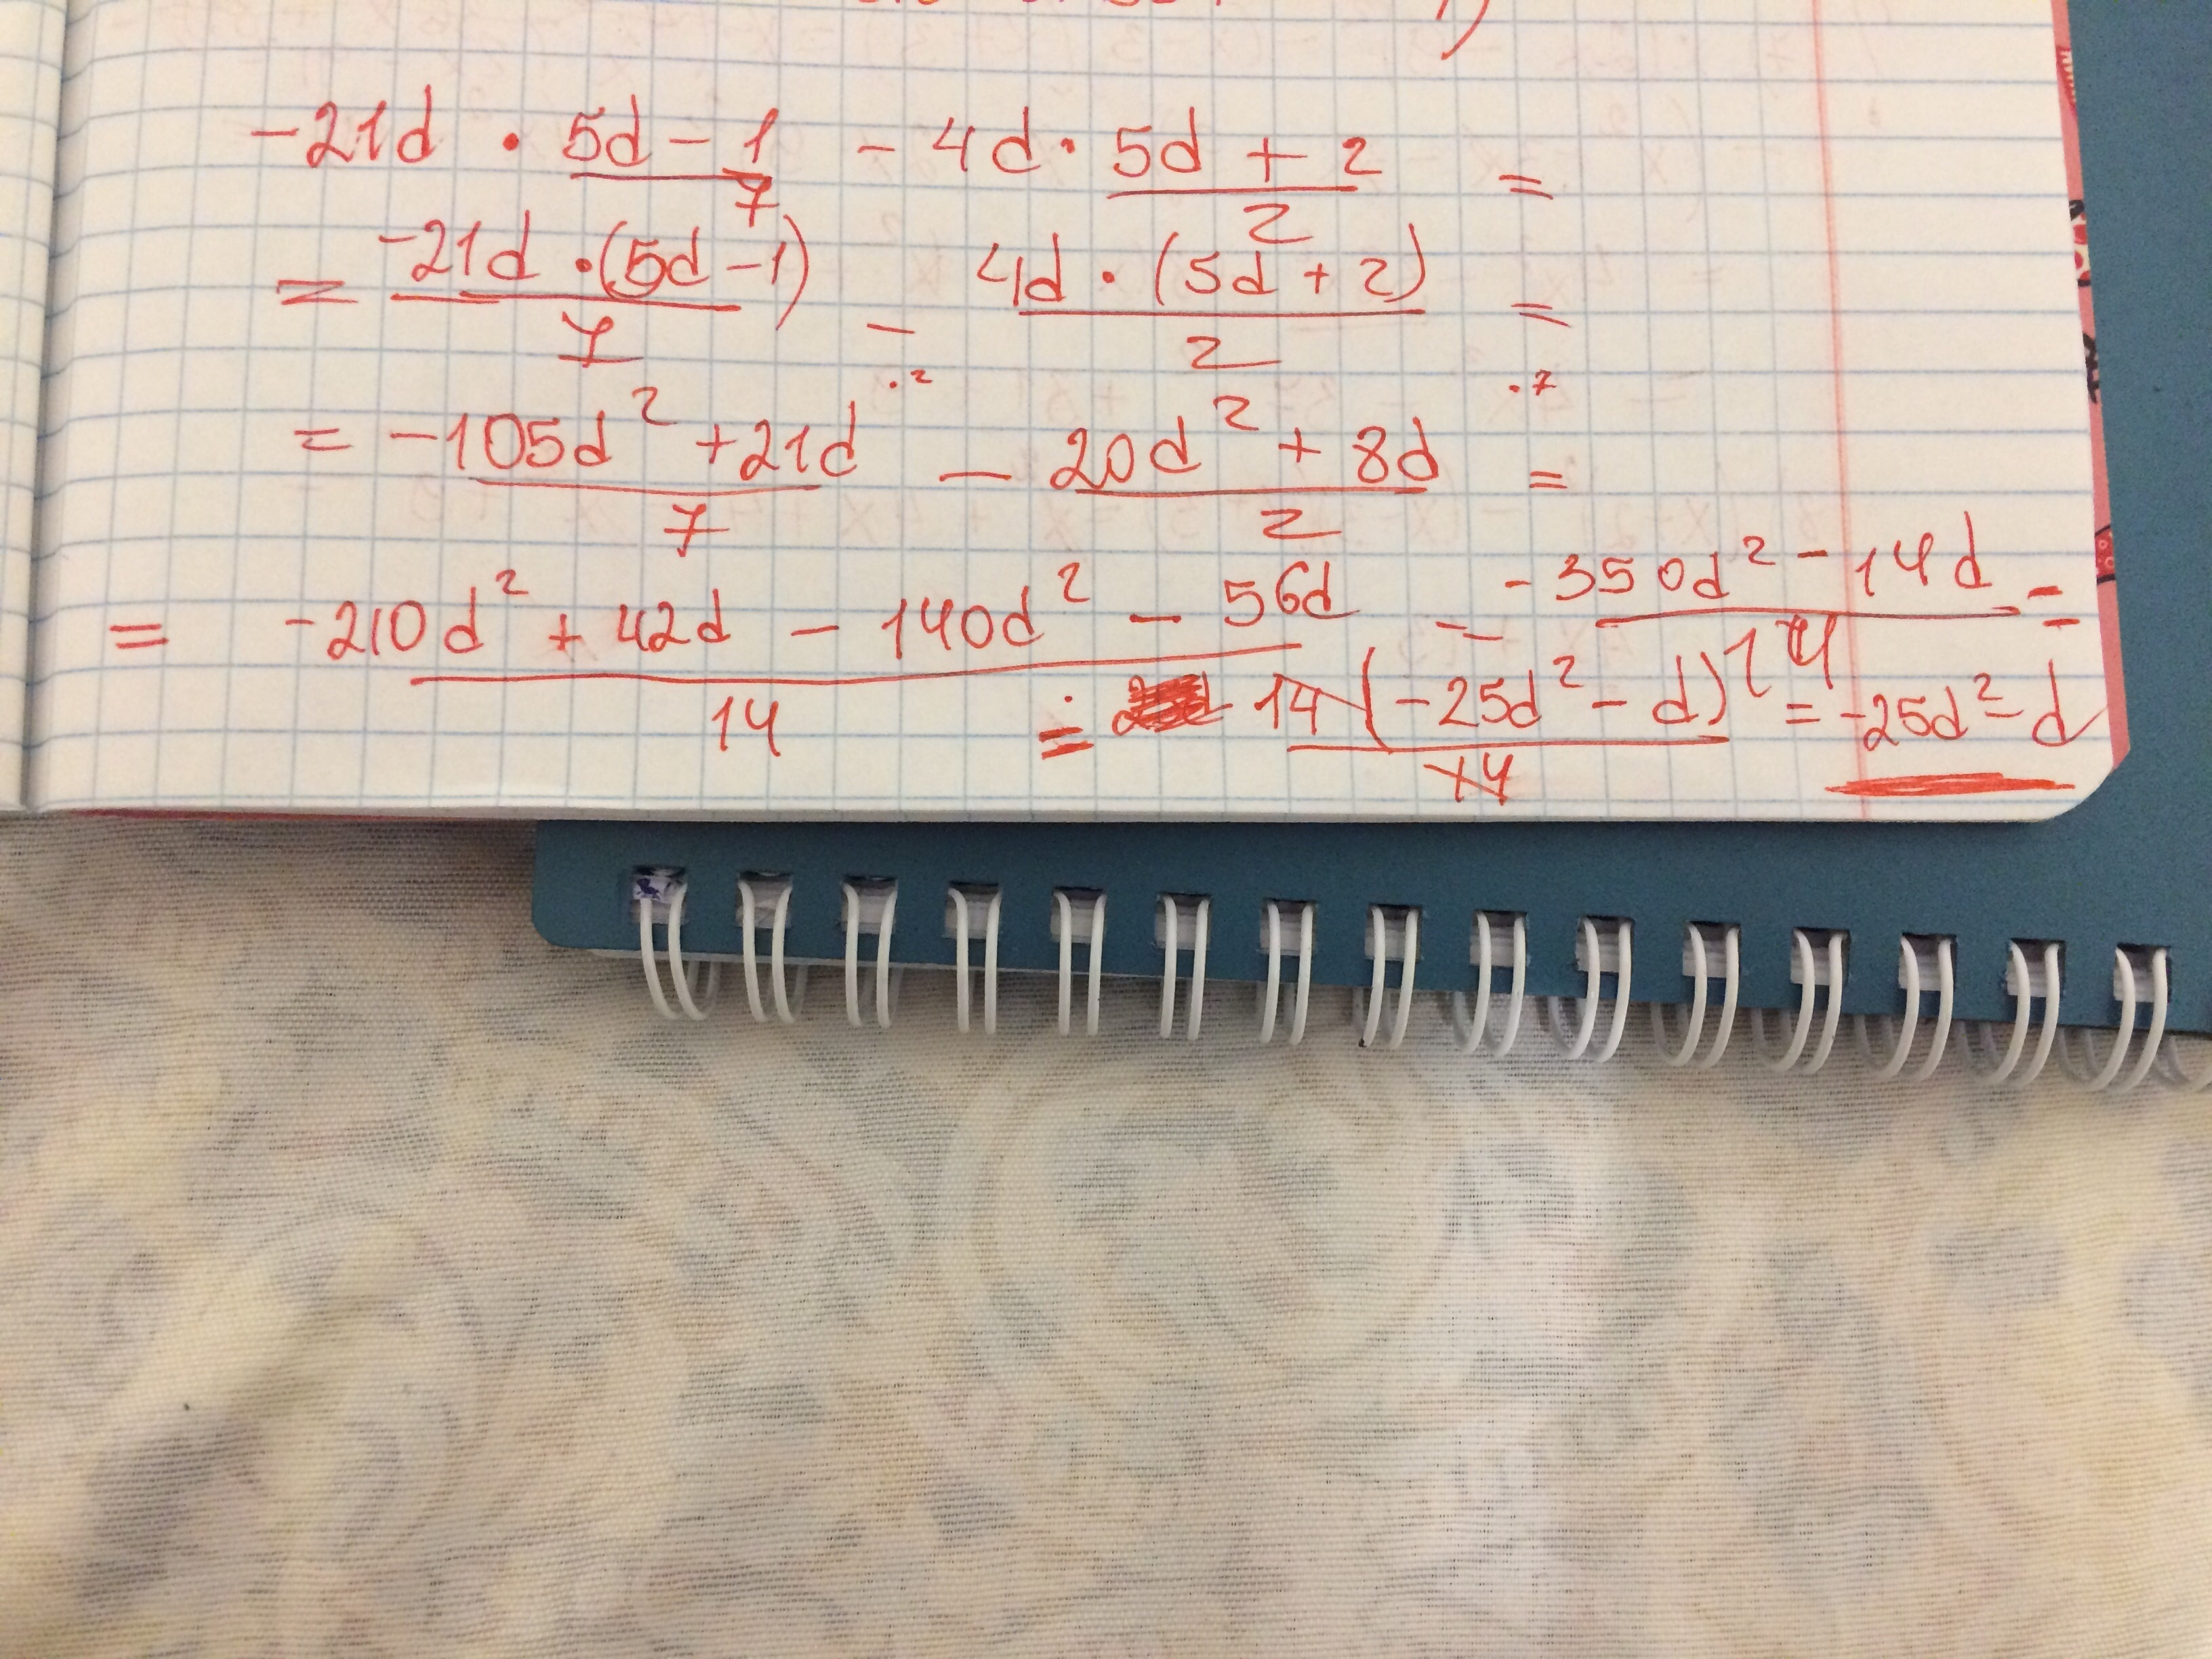 -21d · 5d - 1 - 4d · 5d + 2 =
7 2
= -21d · (5d - 1) - 4d · (5d + 2) =
7 2
·2 ·7
= -105d² + 21d - 20d² + 8d =
7 2
= -210d² + 42d - 140d² - 56d = -350d² - 14d =
14 14
= 14 (-25d² - d) = -25d² - d
14